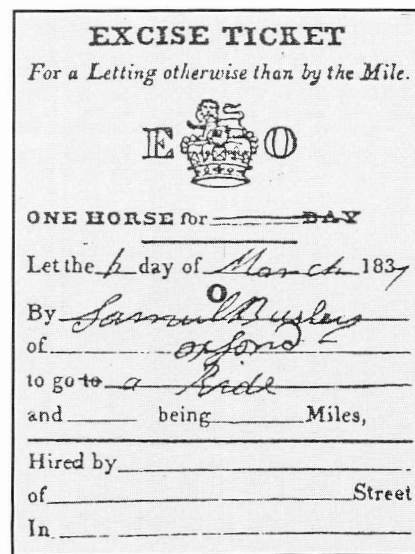 EXCISE TICKET
For a Letting otherwise than by the Mile.
E O
ONE HORSE for DAY
Let the day of March 1837
O
By Samuel
of oxford
to go to a Ride
and being Miles,
Hired by
of Street
In